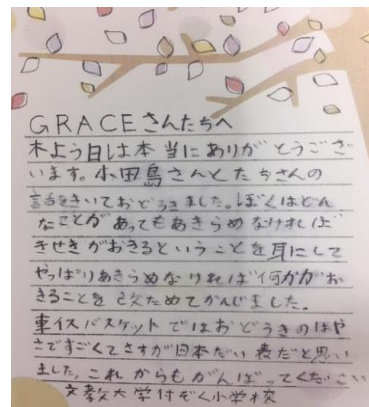 GRACEさんたちへ
木よう日は本当にありがとうござ
います。小田島さんとたちさんの
話をきいておどろきました。ぼくはどん
なことがあってもあきらめなければ
きせきがおきるということを耳にして
やっぱりあきらめなければ何かがお
きることを改ためてかんじました。
車イスバスケットではおどろきのはや
さですごくてさすが日本だい表だと思い
ました。これからもがんばってください
文教大学付ぞく小学校